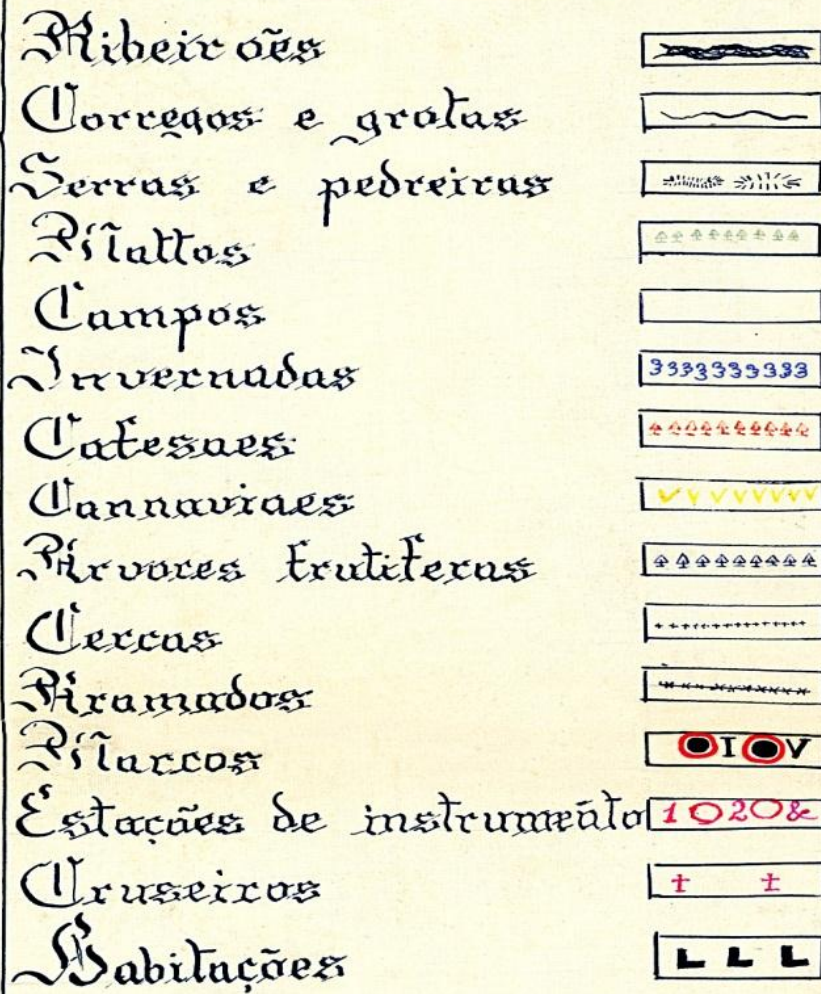 Ribeirões
Corregos e grotas
Serras e pedreiras
Mattos
Campos
Invernadas
Cafesaes
Cannaviaes
Arvores frutiferas
Cercas
Aramados
Marcos I V
Estações de instrumento 1 O 2 O &
Cruseiros
Habitações